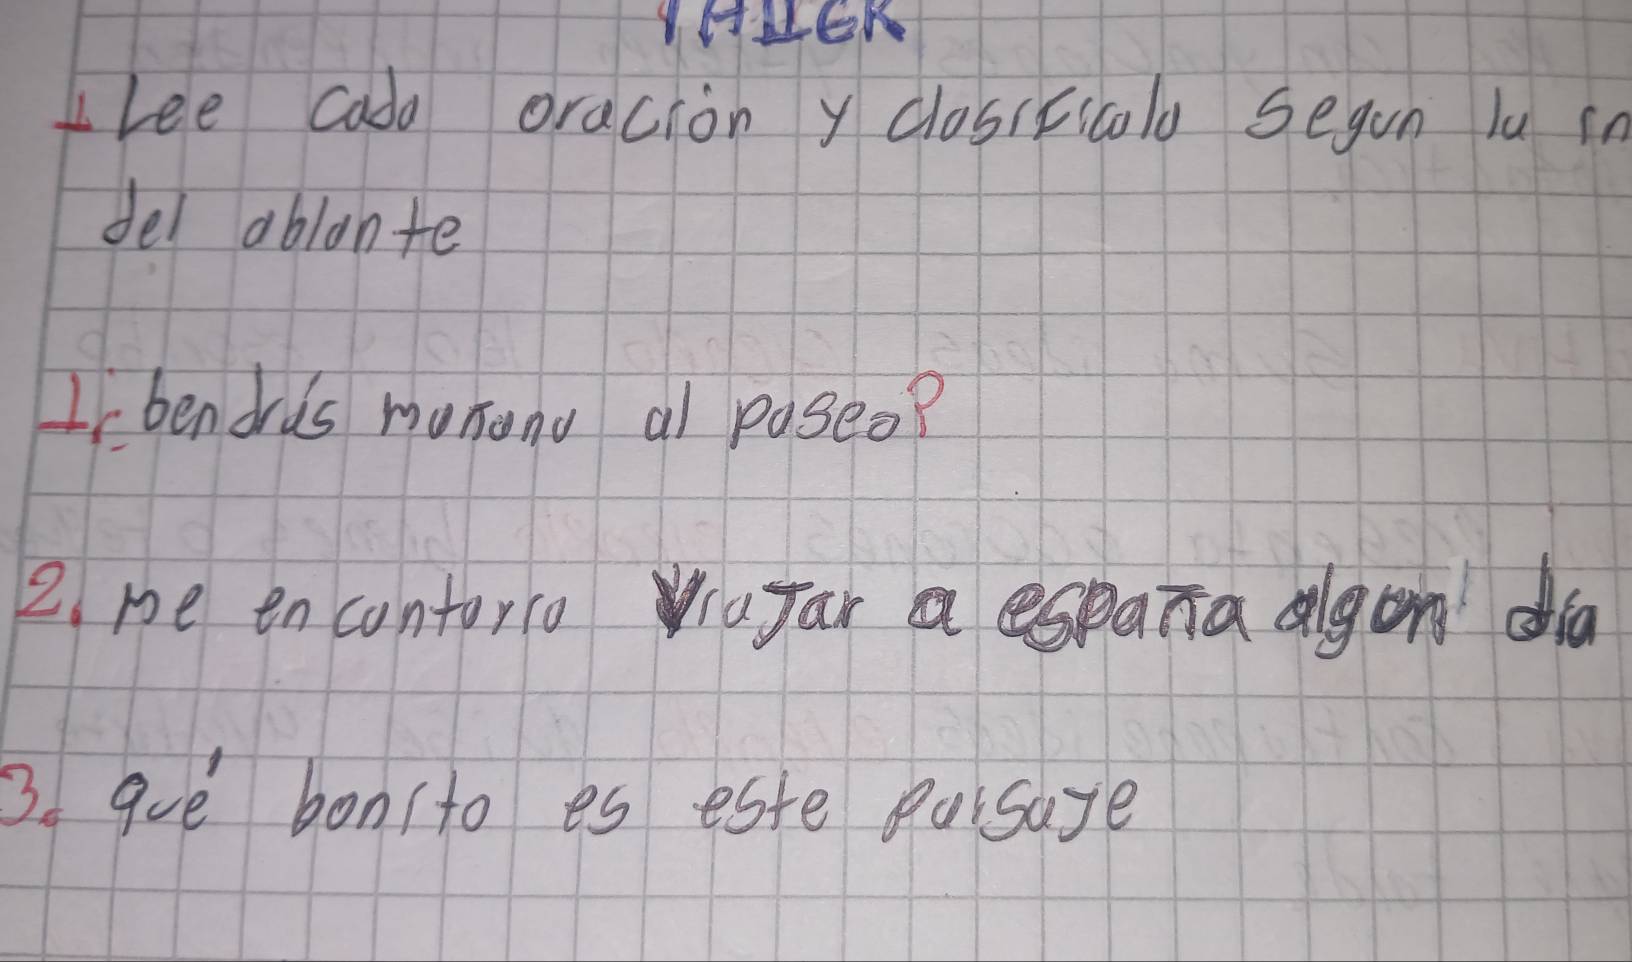 TAllER
1 Lee cada oración y clasificala segun la in
del ablante
1 ¿bendrás mañana al paseo?
2. me encontaria viajar a españa algun día
3. qué bonito es este paisaje